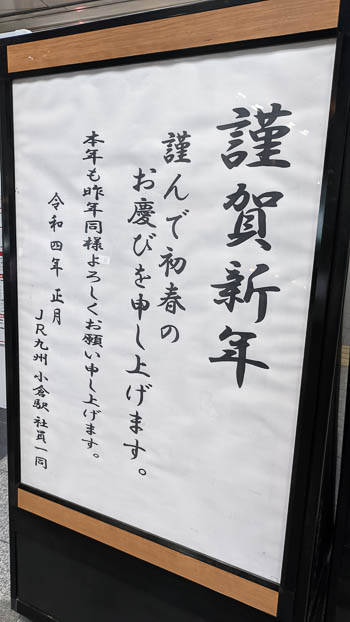 謹賀新年
謹んで初春の
お慶びを申し上げます。
本年も昨年同様よろしくお願い申し上げます。
令和四年 正月
JR九州 小倉駅 社員一同